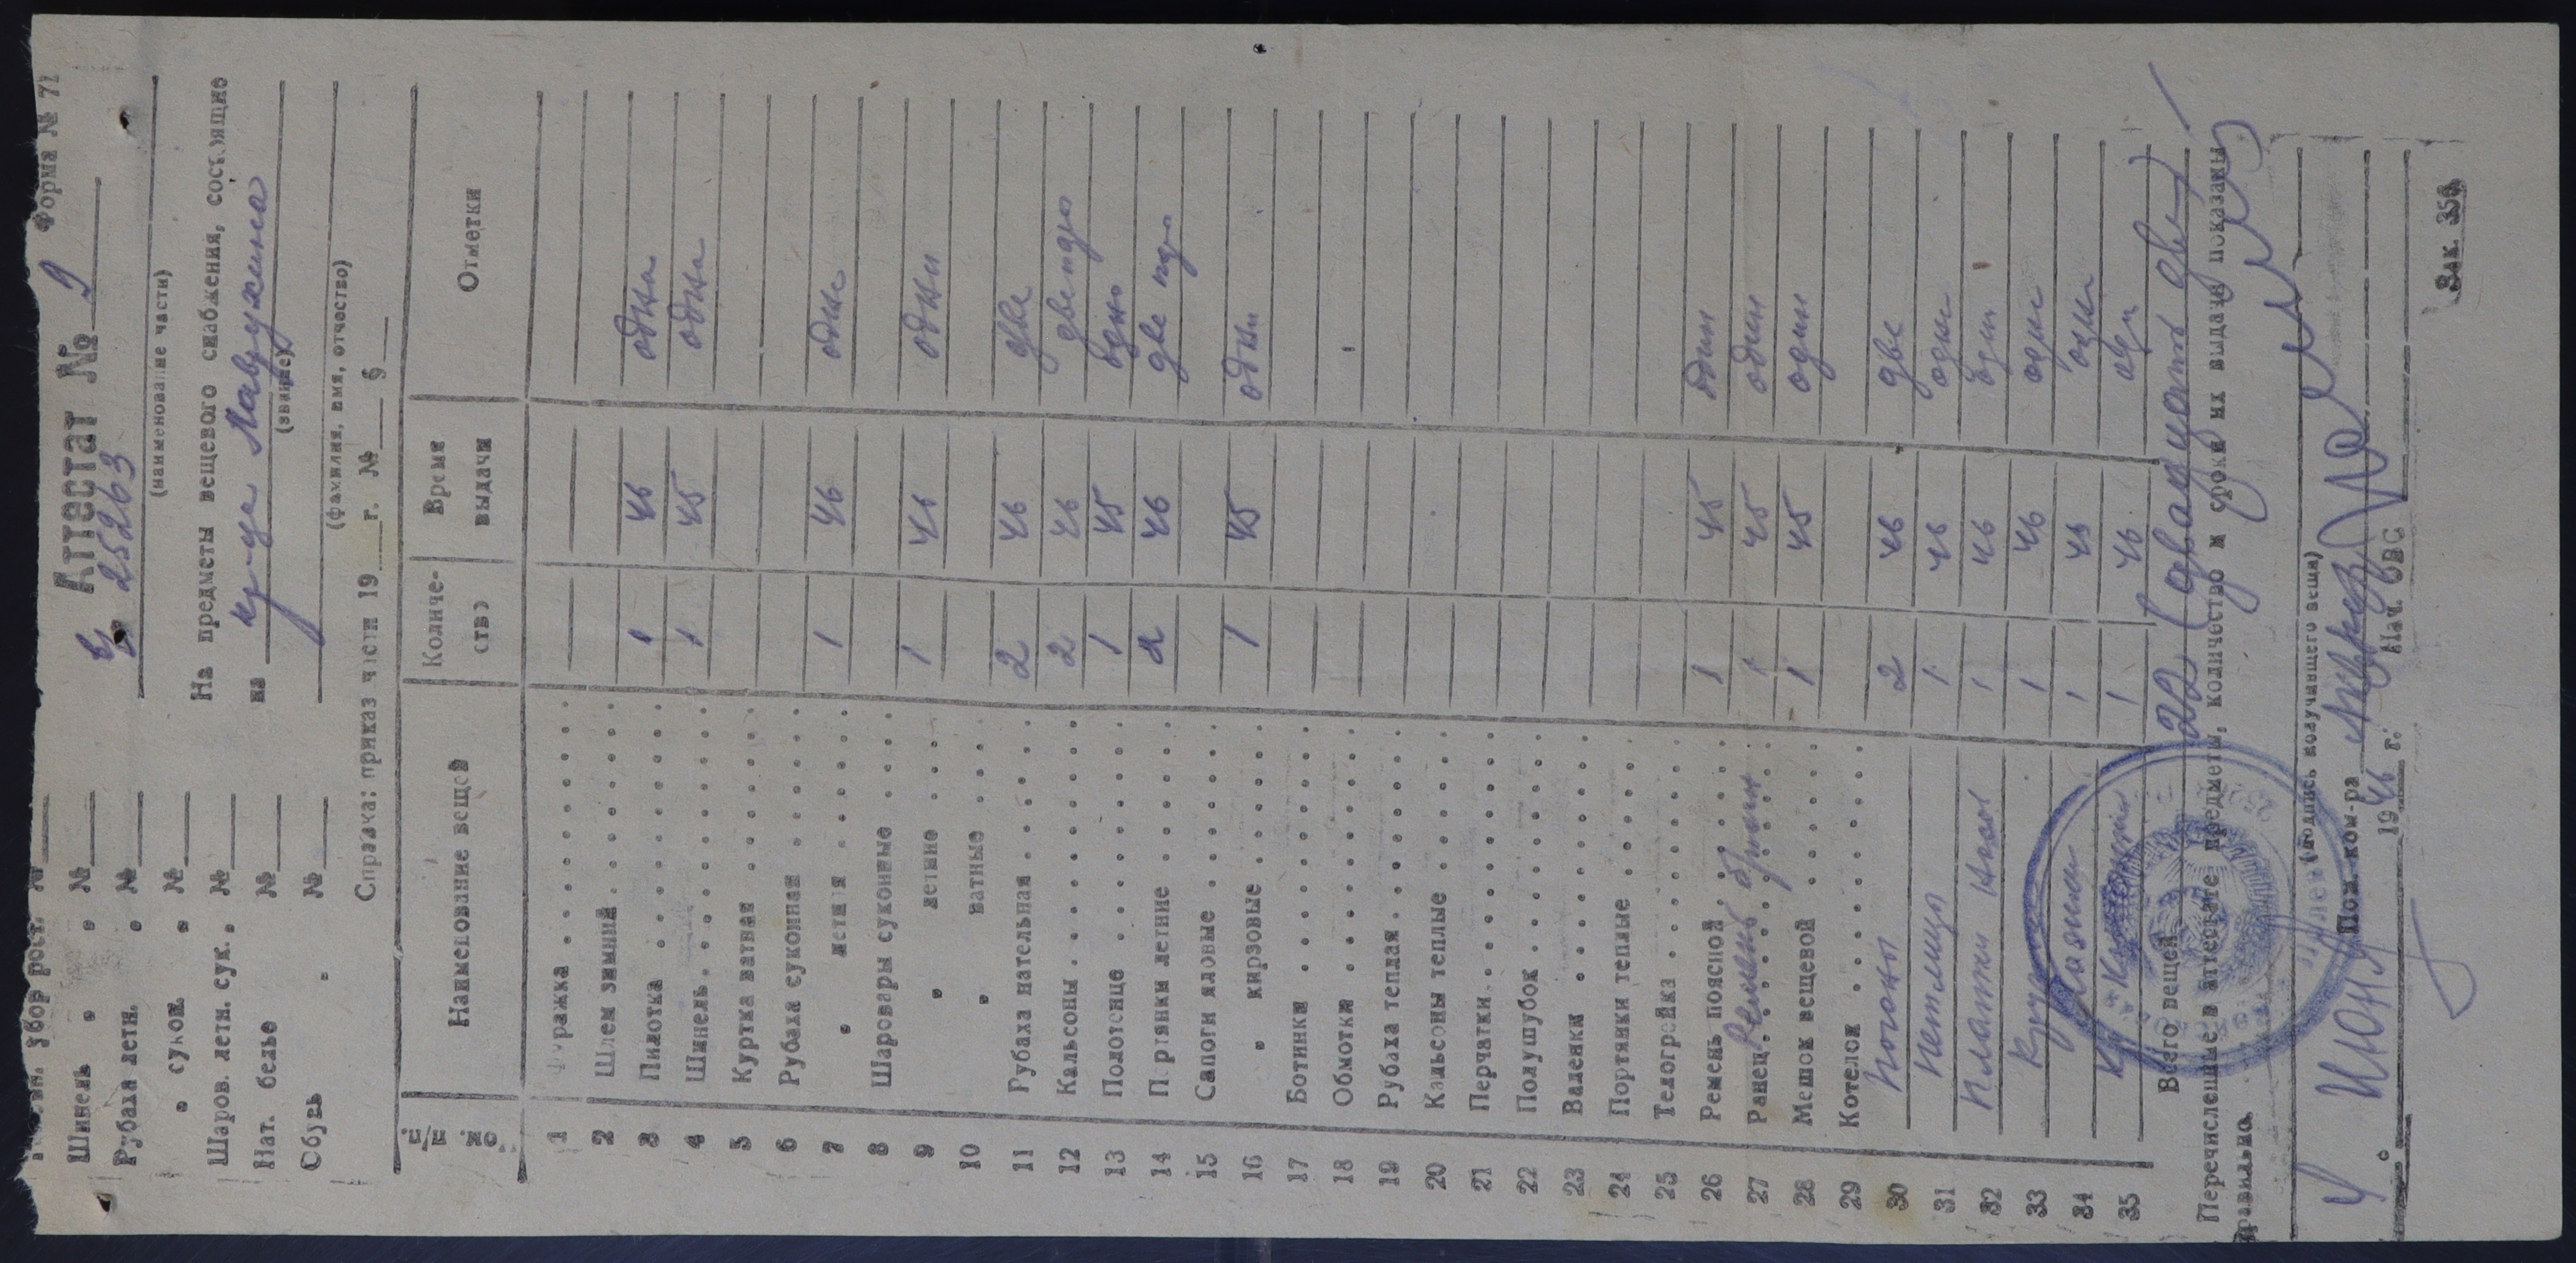 Форма № 71
Аттестат № 9
25263
(наименование части)
Шинель " " №
Рубаха летн. " №
" сукон. " №
Шаров. летн. сук. " №
Нат. белье №
Обувь " №
На предметы вещевого снабжения, состоящие
на кр-ца Мавружина
(звание)
(фамилия, имя, отчество)
Справка: приказ части 19 г. № §
№ п/п Наименование вещей Количество Время выдачи Отметки
1 Фуражка
2 Шлем зимний
3 Пилотка 1 46 одна
4 Шинель 1 45 одна
5 Куртка ватная
6 Рубаха суконная
7 " летняя 1 46 одна
8 Шаровары суконные
9 " летние 1 46 одни
10 " ватные
11 Рубаха нательная 2 46 две
12 Кальсоны 2 46 две пары
13 Полотенце 1 45 одно
14 Портянки летние 2 46 две пары
15 Сапоги яловые
16 " кирзовые 1 45 одни
17 Ботинки
18 Обмотки
19 Рубаха теплая
20 Кальсоны теплые
21 Перчатки
22 Полушубок
23 Валенки
24 Портянки теплые
25 Телогрейка
26 Ремень поясной 1 45 один
27 Ранец Ремень брючн 1 45 один
28 Мешок вещевой 1 45 один
29 Котелок
30 Погоны 2 46 две
31 Петлицы 1 46 одни
32 Платки носов 1 46 один
33 1 46 один
34 1 45 один
35 1 46
Всего вещей 22 (двадцать две)
Перечисленные в аттестате предметы, количество и сроки их выдачи показаны
правильно.
(подпись получившего вещи)
Пом. ком-ра
4. июня 1946 г. Нач. ОВС
Зак. 350